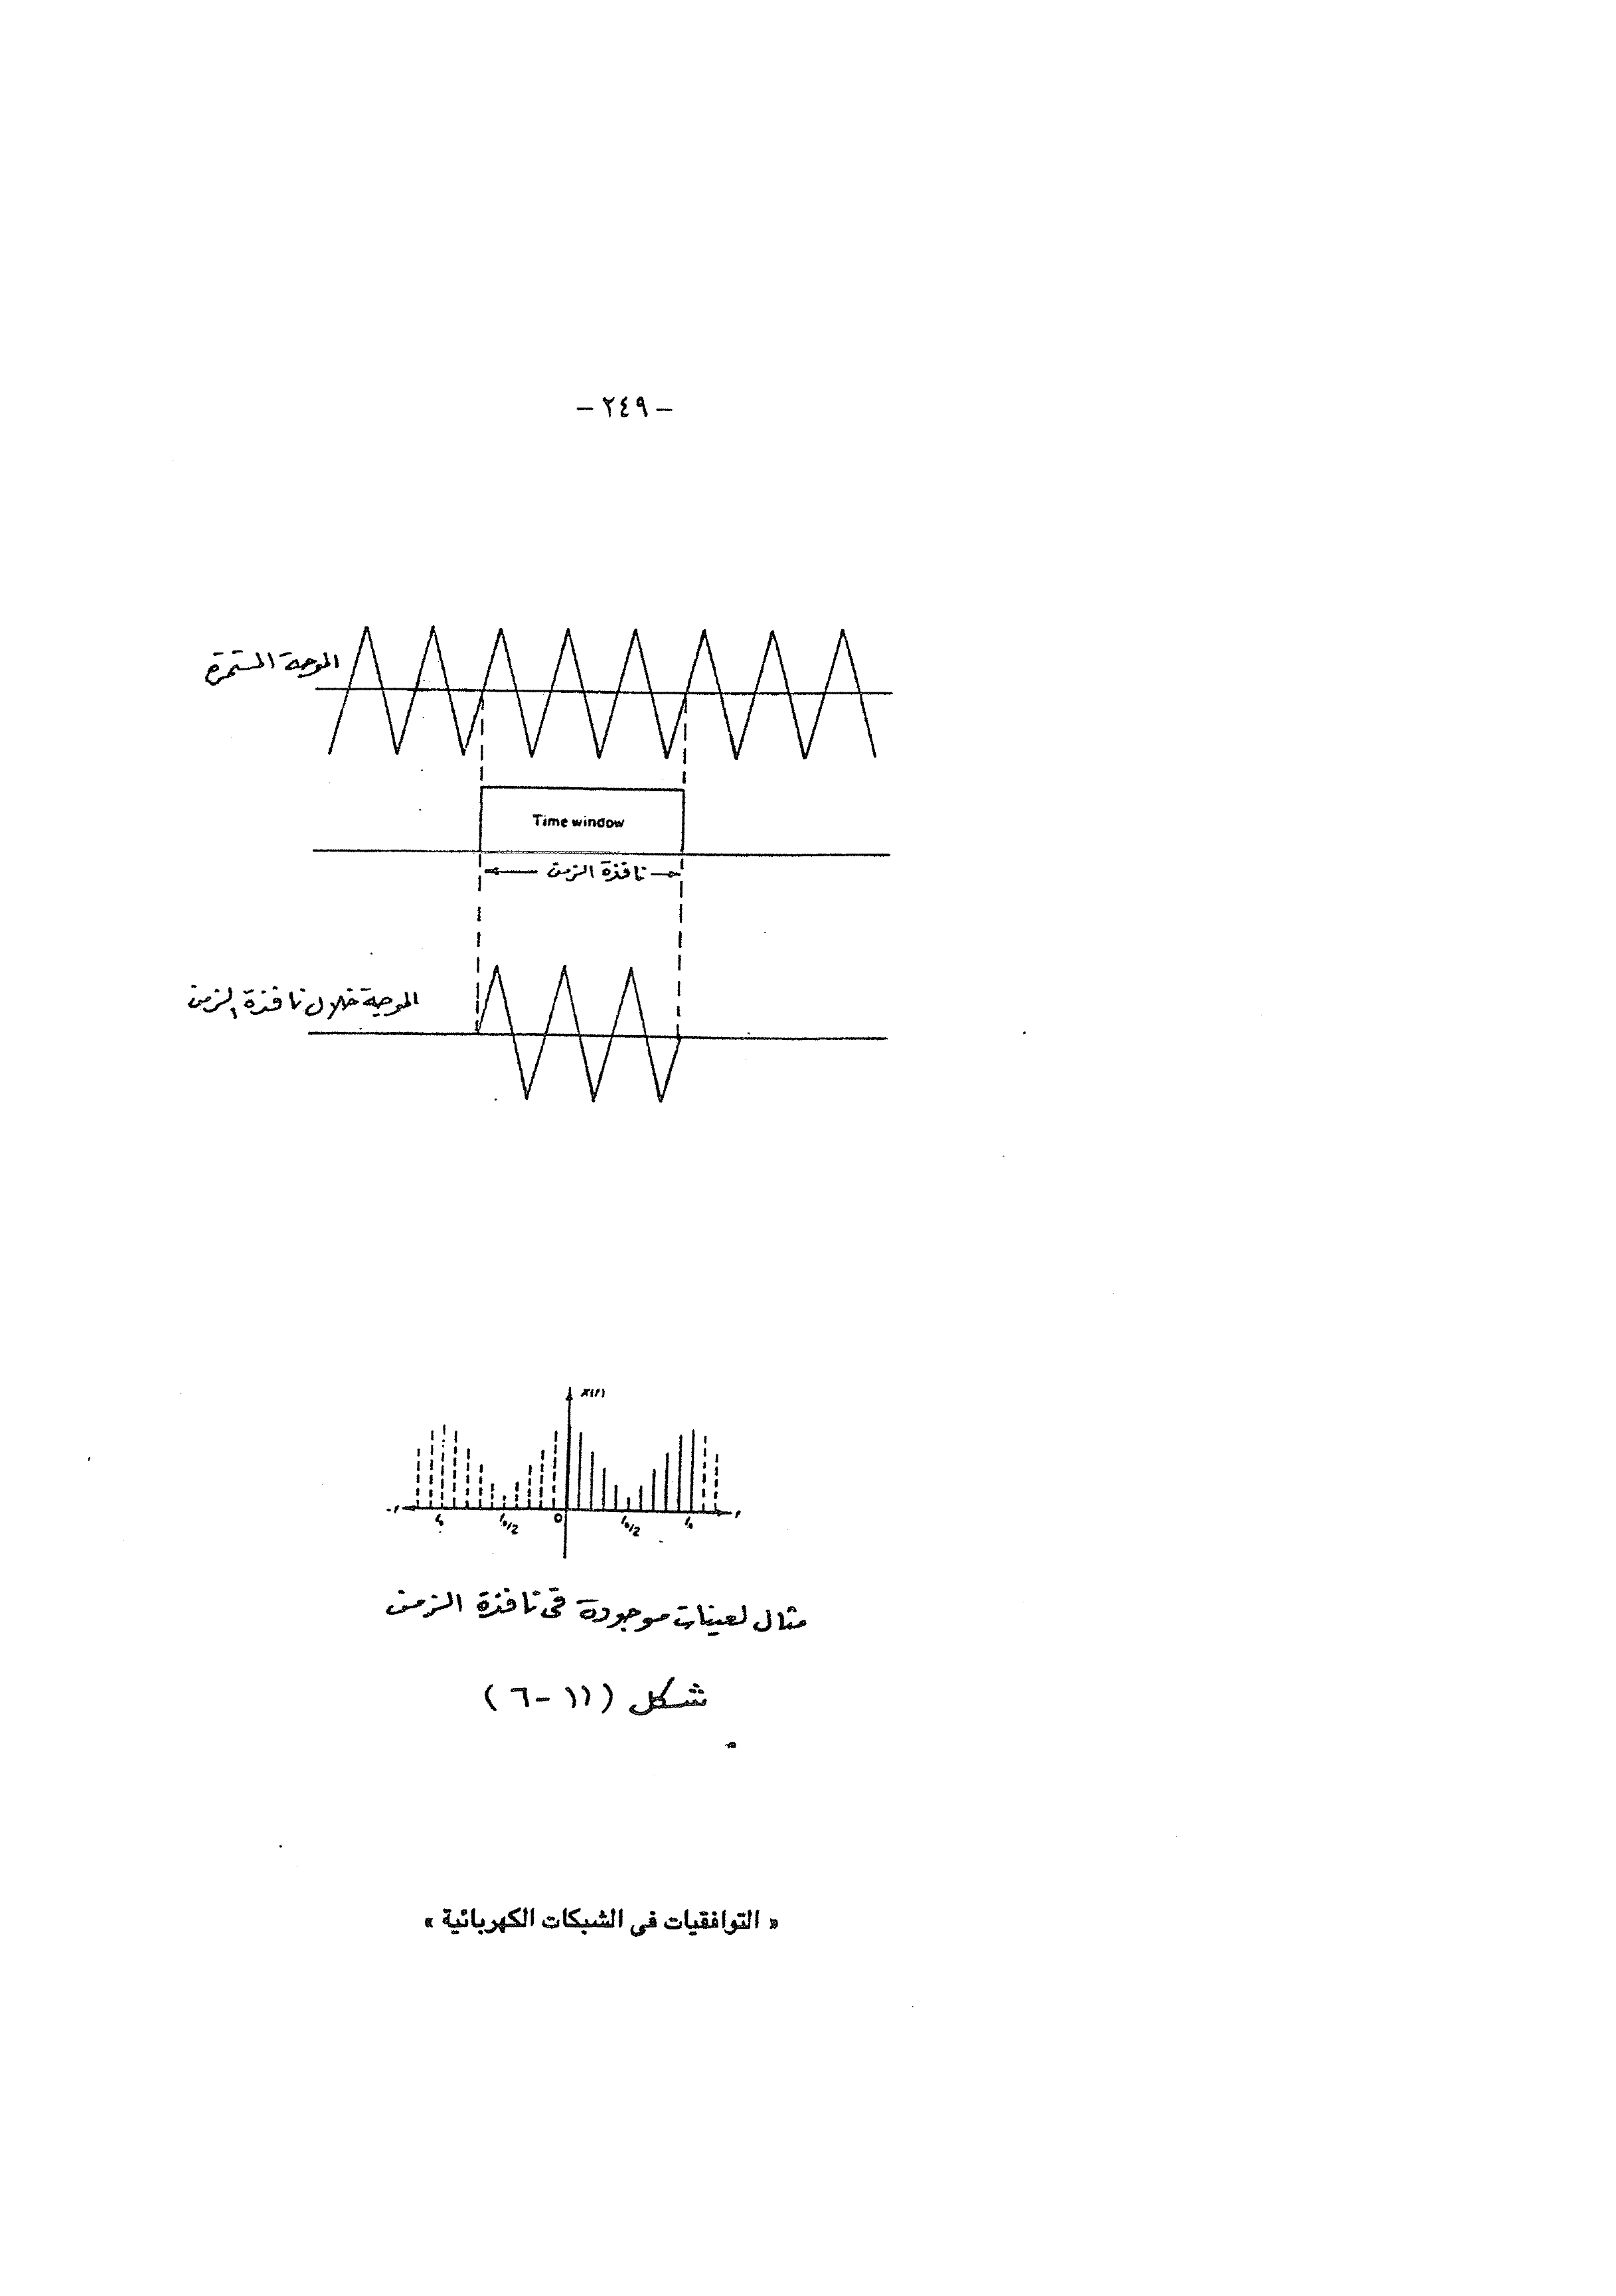 – ٢٤٩ –
الموجة المستمرة
Time window
نافذة الزمن
الموجة خلال نافذة الزمن
X(f)
-f f₀ f₀/2 0 f₀/2 f₀ f
مثال لعينات موجودة فى نافذة الزمن
شكل (١١-٦)
« التوافقيات فى الشبكات الكهربائية »